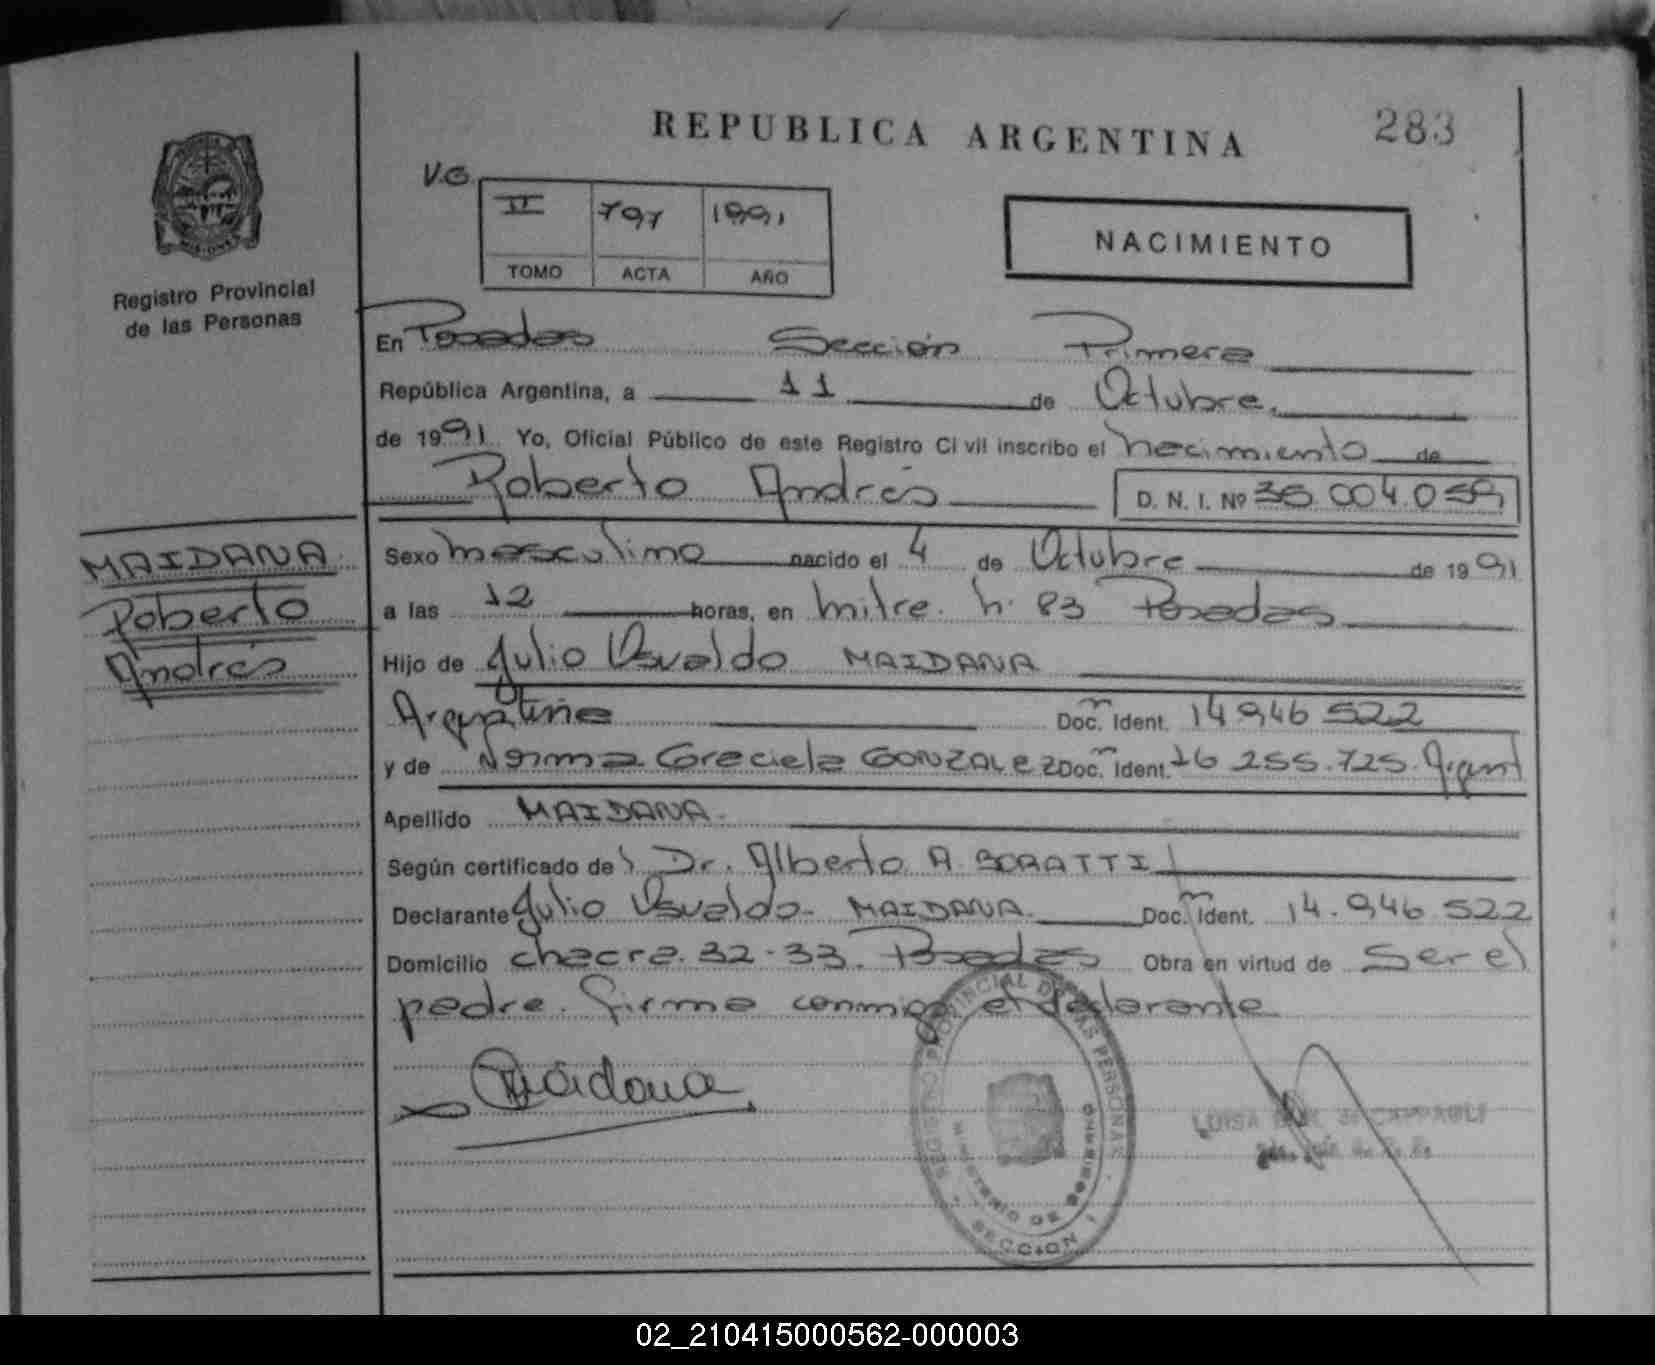 REPUBLICA ARGENTINA
283
V.G.
II 797 1991
TOMO ACTA AÑO
NACIMIENTO
MISIONES
Registro Provincial
de las Personas
En Posadas Sección Primera
República Argentina, a 11 de Octubre.
de 1991 Yo, Oficial Público de este Registro Civil inscribo el nacimiento de
Roberto Andrés D. N. I. Nº 36.004.059
MAIDANA
Roberto
Andrés
Sexo masculino nacido el 4 de Octubre de 1991
a las 12 horas, en Mitre. N. 83 Posadas
Hijo de Julio Osvaldo MAIDANA
Argentino Doc. Ident. 14.946.522
y de Norma Graciela GONZALEZ Doc. Ident. 16.255.725. Argent
Apellido MAIDANA
Según certificado del Dr. Alberto A. BORATTI
Declarante Julio Osvaldo MAIDANA Doc. Ident. 14.946.522
Domicilio chacra 32-33. Posadas Obra en virtud de Ser el
padre. firma conmigo el declarante
Maidana
REGISTRO PROVINCIAL DE LAS PERSONAS
MINISTERIO DE GOBIERNO
SECCION
LUISA de CAPPAULI
02_210415000562-000003